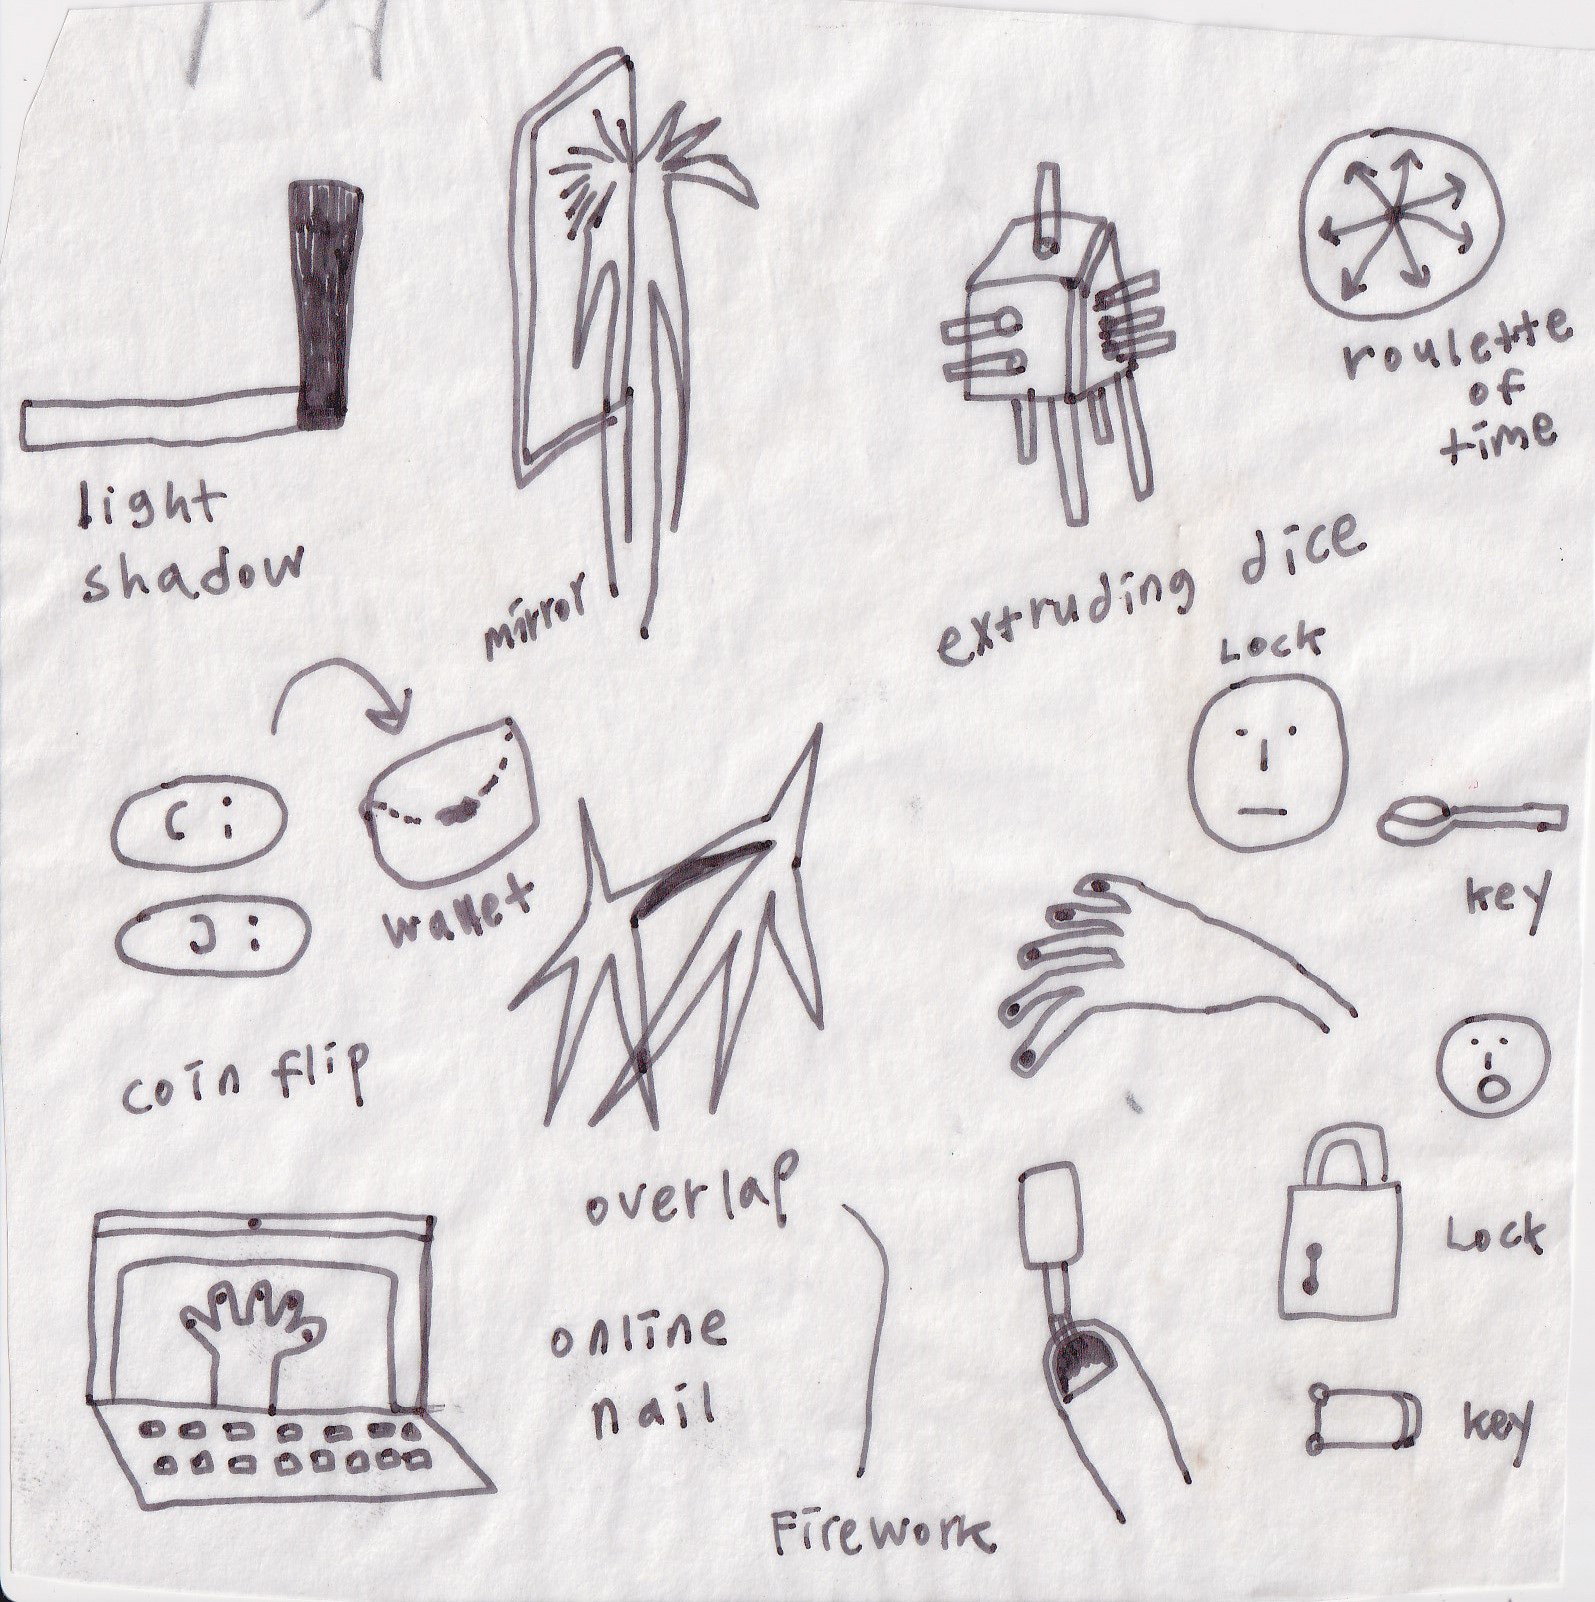 light
shadow
mirror
extruding dice
roulette
of
time
C:
J:
wallet
coin flip
overlap
Lock
key
online
nail
Firework
Lock
key